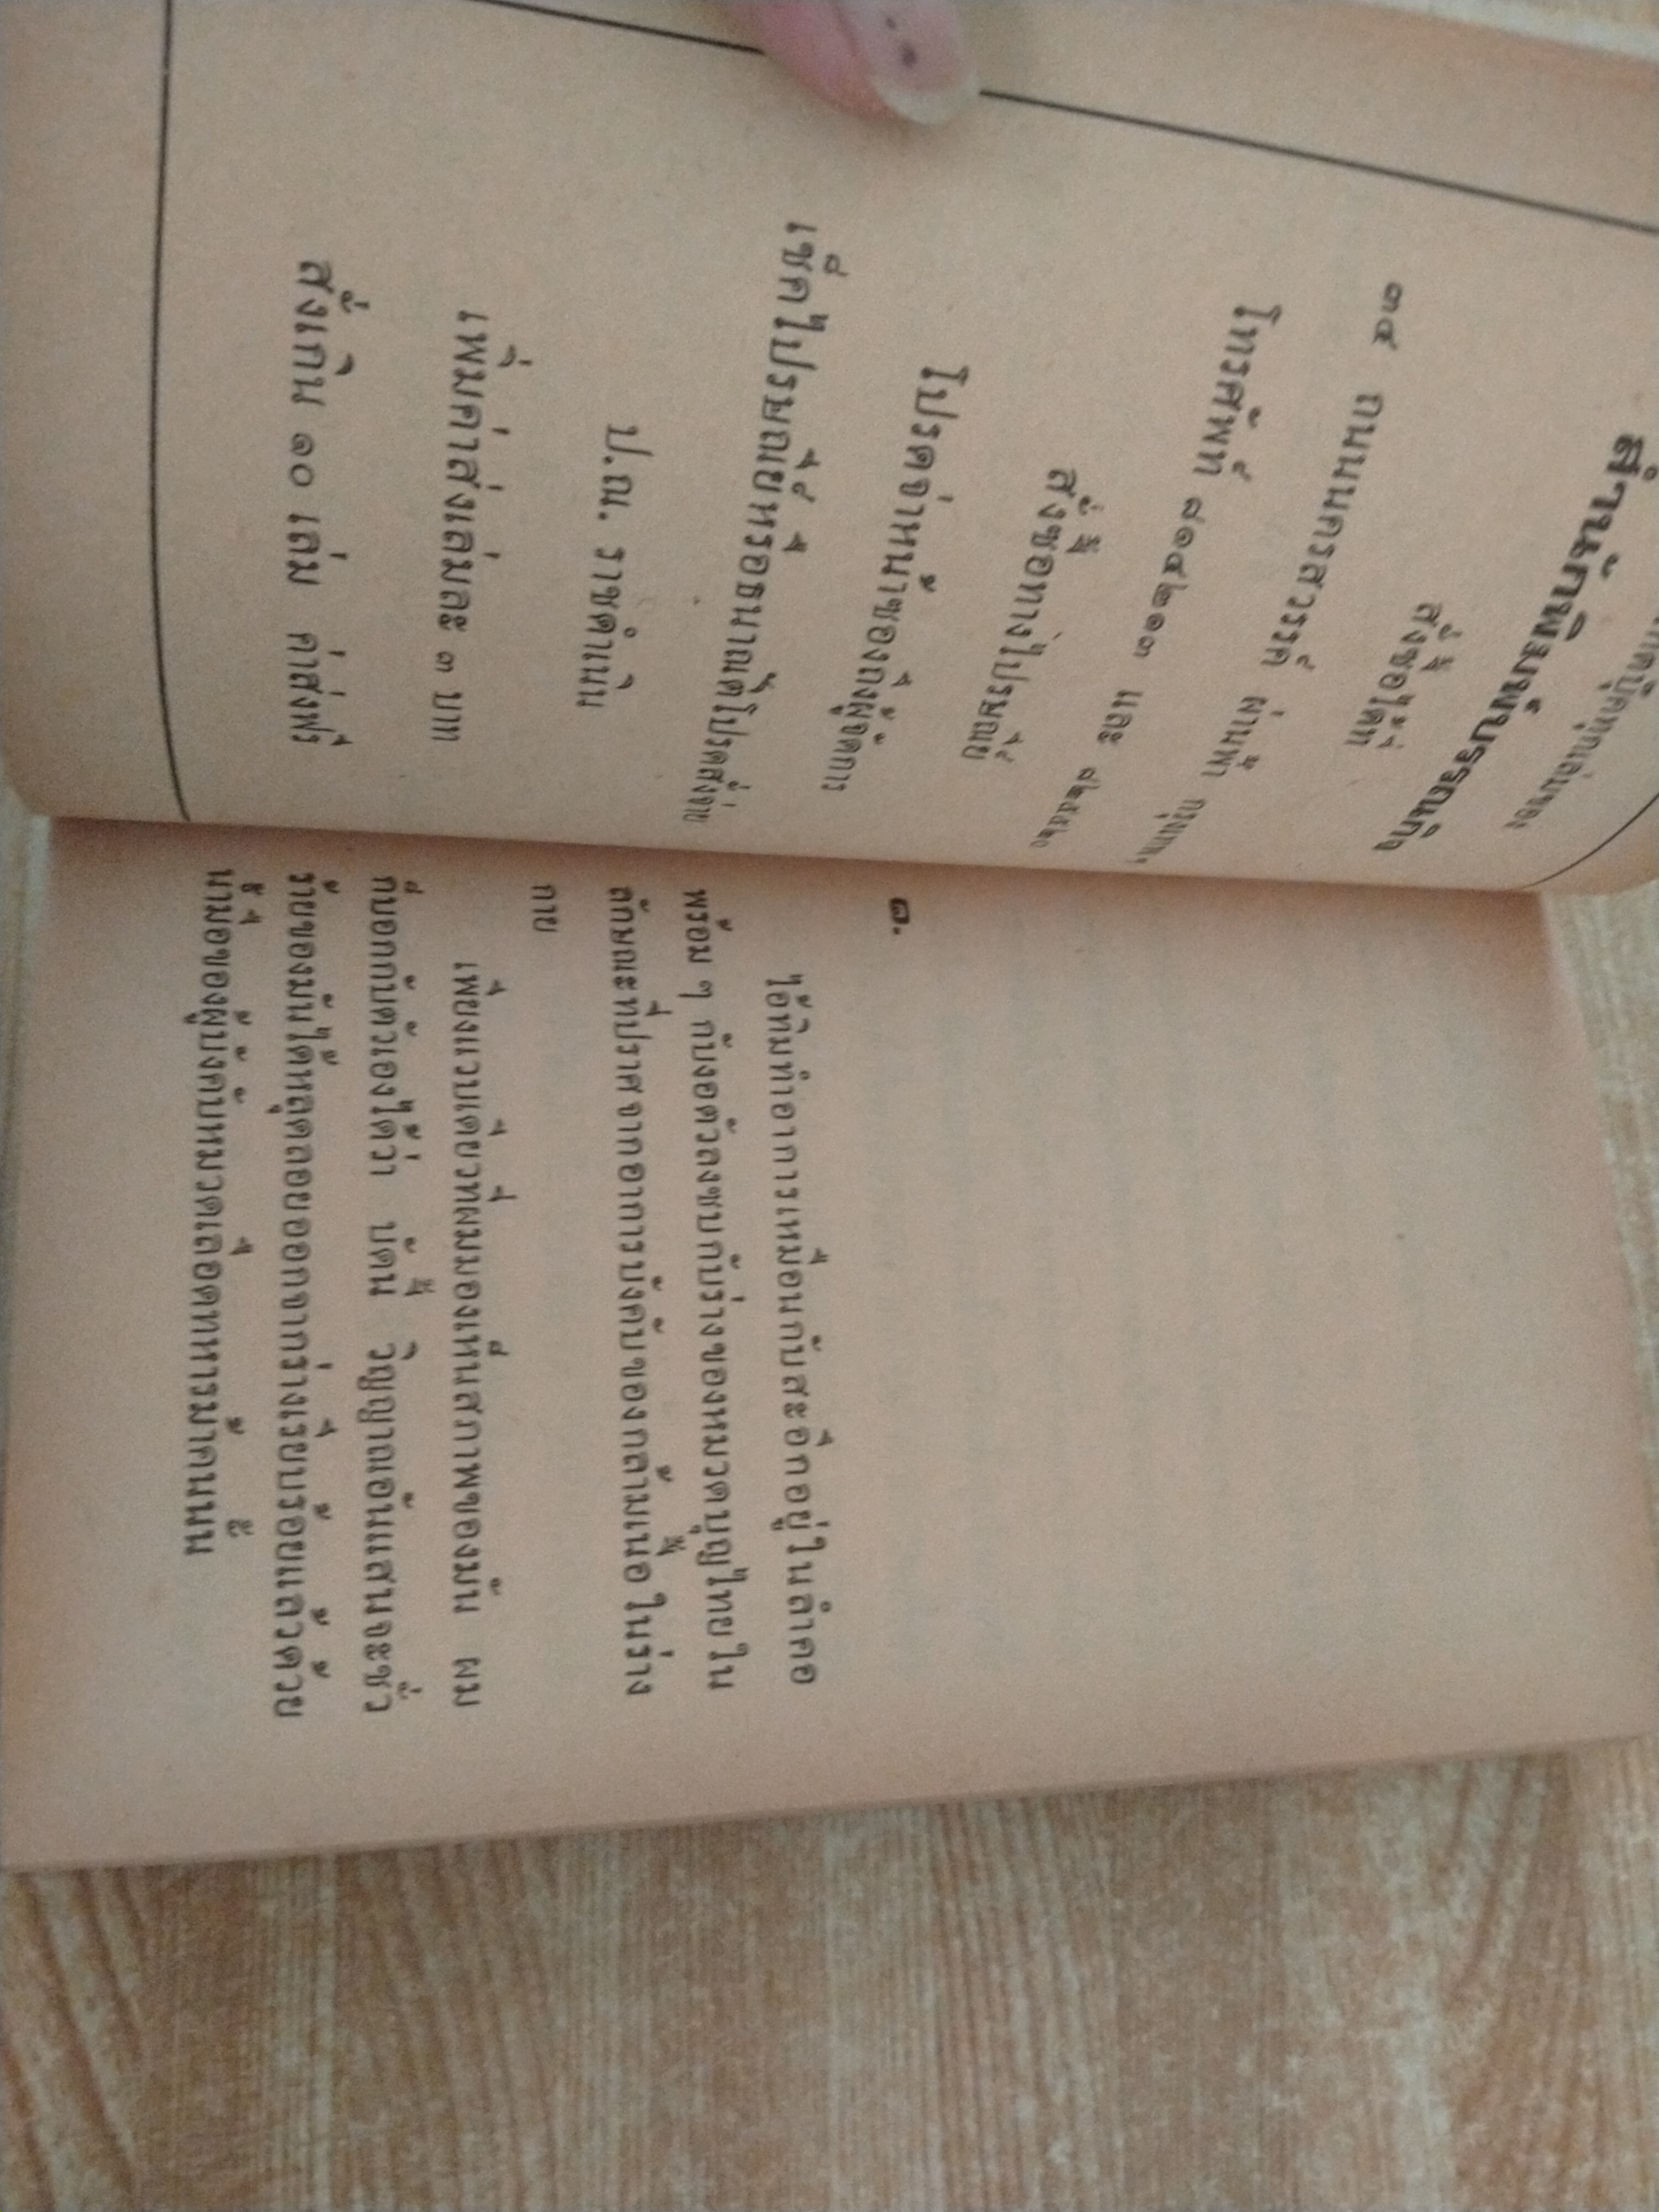 สำนักพิมพ์บรรณกิจ
สั่งซื้อได้ที่
๓๔ ถนนนครสวรรค์ ผ่านฟ้า กรุงเทพ,
โทรศัพท์ ๘๑๔๒๑๓ และ
สั่งซื้อทางไปรษณีย์
โปรดจ่าหน้าซองถึงผู้จัดการ
เช็คไปรษณีย์หรือธนาณัติโปรดสั่งจ่าย
ป.ณ. ราชดำเนิน
เพิ่มค่าส่งเล่มละ ๓ บาท
สั่งเกิน ๑๐ เล่ม ค่าส่งฟรี
๑.
ไอ้ทิมทำอาการเหมือนกับสะอึกอยู่ในลำคอ
พร้อม ๆ กับงอตัวลงซบกับร่างของหมวดบุญไทยใน
ลักษณะที่ปราศจากอาการบังคับของกล้ามเนื้อในร่าง
กาย
เพียงแวบเดียวที่ผมมองเห็นสภาพของมัน ผม
ก็บอกกับตัวเองได้ว่า บัดนี้ วิญญาณอันแสนจะชั่ว
ร้ายของมันได้หลุดลอยออกจากร่างเรียบร้อยแล้วด้วย
น้ำมือของผู้บังคับหมวดเลือดทหารม้าคนนั้น